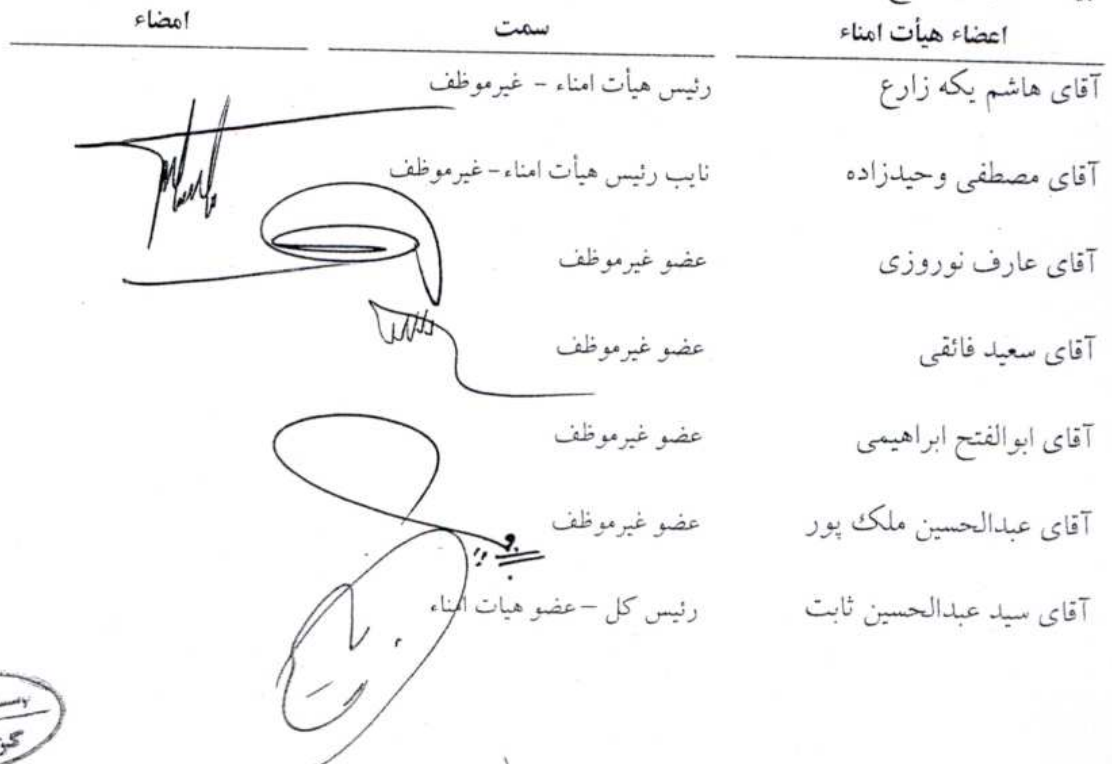 اعضاء هیأت امناء سمت امضاء
آقای هاشم یکه زارع رئیس هیأت امناء - غیرموظف
آقای مصطفی وحیدزاده نایب رئیس هیأت امناء-غیرموظف
آقای عارف نوروزی عضو غیرموظف
آقای سعید فائقی عضو غیرموظف
آقای ابوالفتح ابراهیمی عضو غیرموظف
آقای عبدالحسین ملک پور عضو غیرموظف
آقای سید عبدالحسین ثابت رئیس کل – عضو هیات امناء